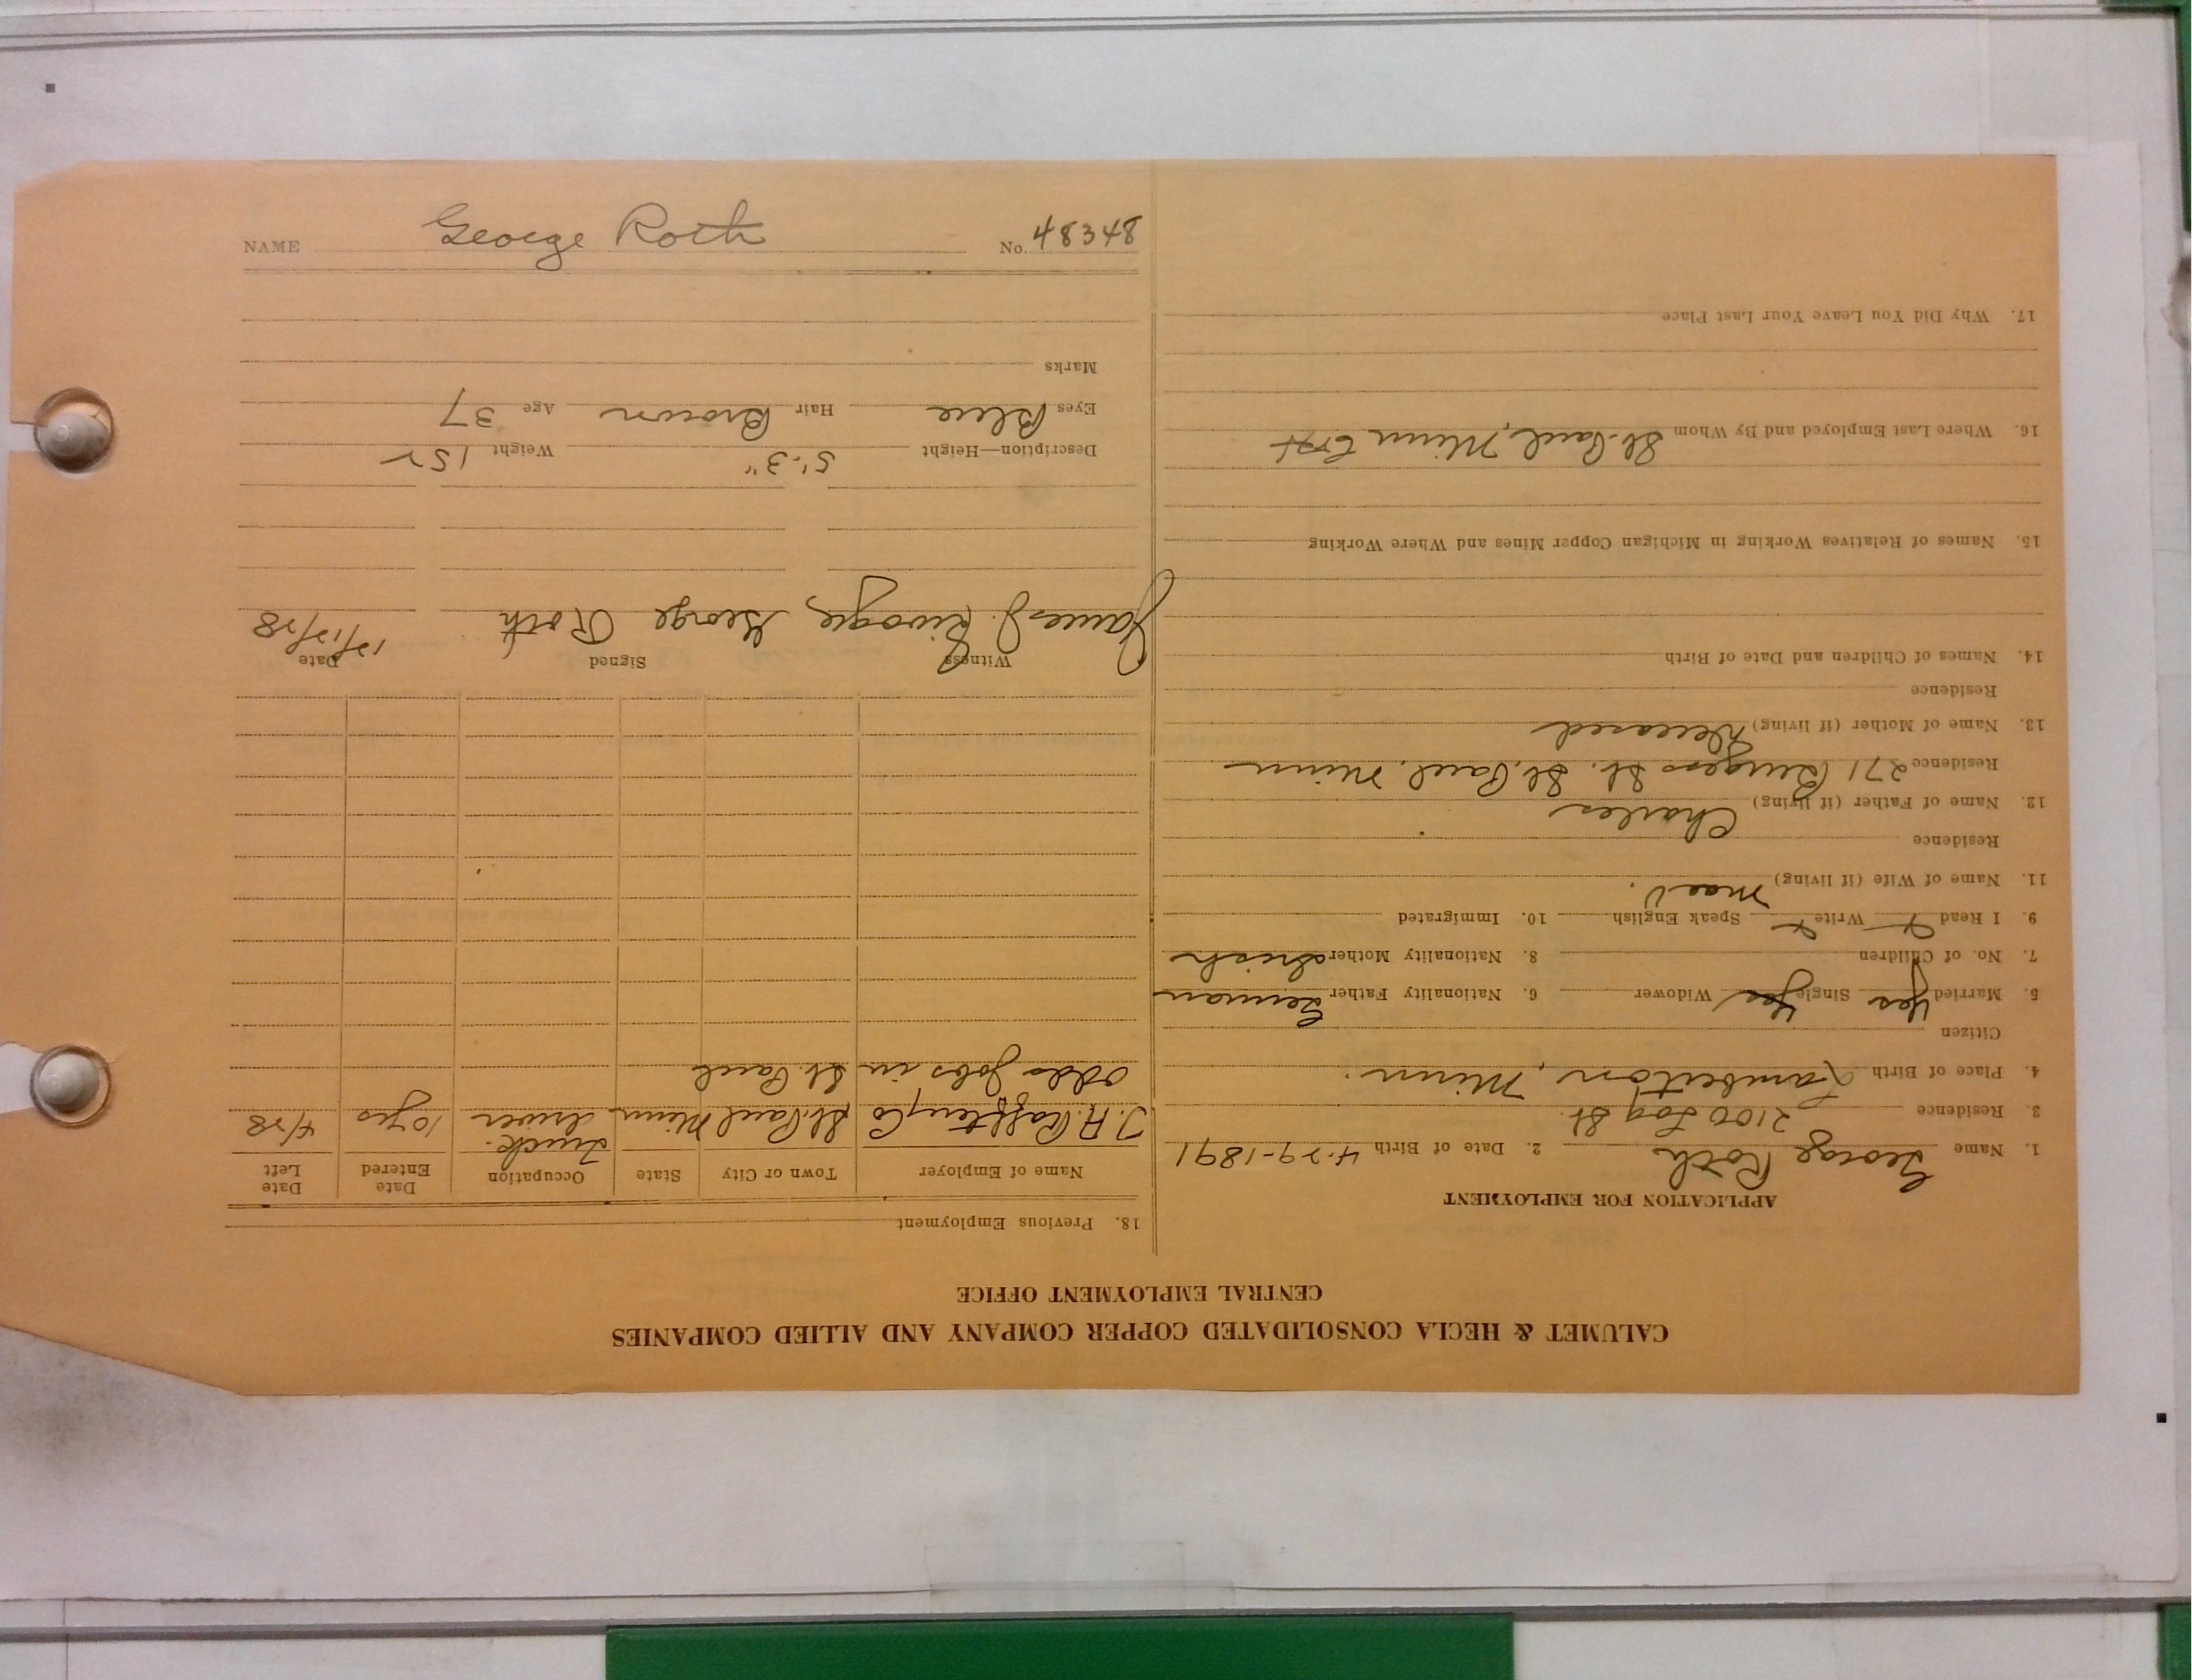 CALUMET & HECLA CONSOLIDATED COPPER COMPANY AND ALLIED COMPANIES
CENTRAL EMPLOYMENT OFFICE
APPLICATION FOR EMPLOYMENT
1. Name George Roth 2. Date of Birth 4-29-1891
3. Residence 2100 Log St.
4. Place of Birth Lamberton, Minn.
Citizen
5. Married Yes Single Yes Widower 6. Nationality Father German
7. No. of Children 8. Nationality Mother Irish
9. I Read Write Speak English 10. Immigrated
11. Name of Wife (if living) Mae V.
Residence
12. Name of Father (if living) Charles
Residence 271 Burgess St. St. Paul, Minn
13. Name of Mother (if living) Deceased
Residence
14. Names of Children and Date of Birth
15. Names of Relatives Working in Michigan Copper Mines and Where Working
16. Where Last Employed and By Whom St. Paul, Minn
17. Why Did You Leave Your Last Place
18. Previous Employment
Name of Employer Town or City State Occupation Date Entered Date Left
St. Paul Minn Truck driver 10 yrs 4/28
odds jobs in St. Paul
Witness Signed Date
James J. George Roth 12/12/28
Description—Height 5'-3" Weight 152
Eyes Blue Hair Brown Age 37
Marks
NAME George Roth No. 48348